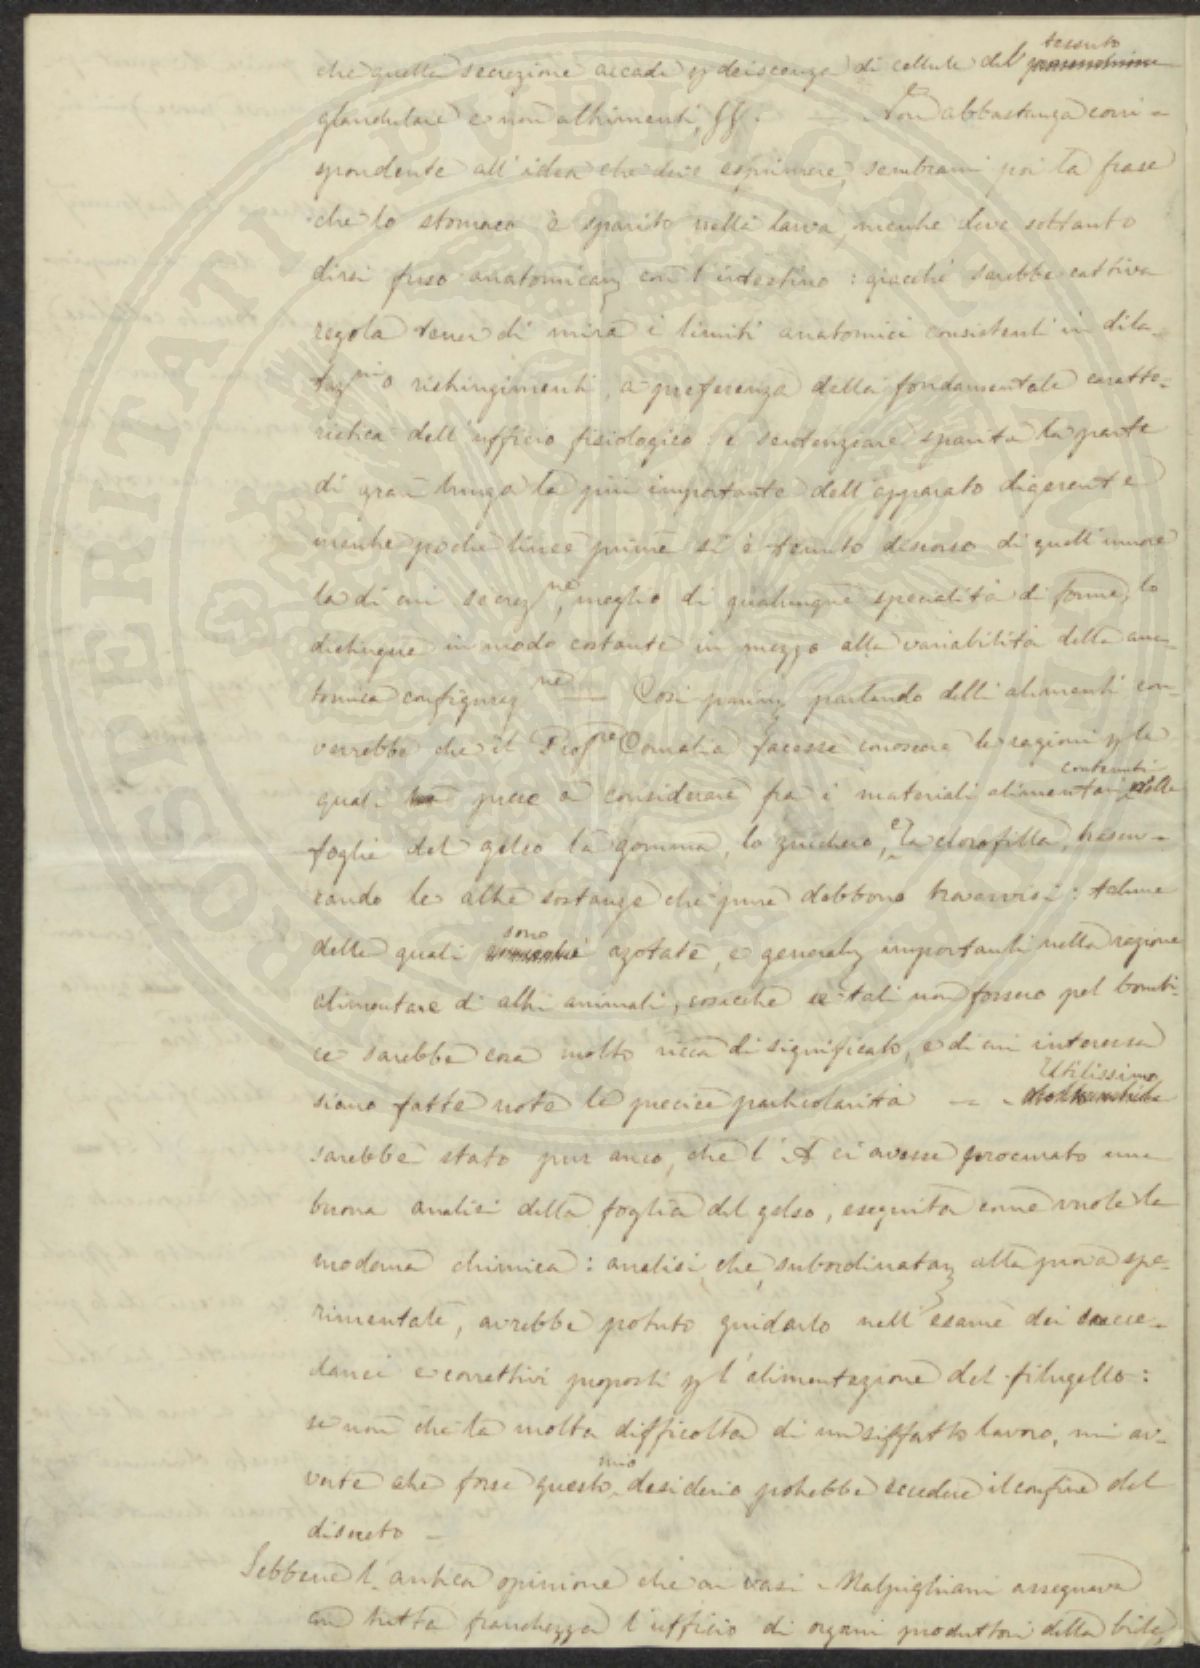 che quella secrezione accada p deiscenza di cellule del tessuto
glandulare e non altrimenti, ff. — Non abbastanza corri-
spondente all'idea che deve esprimere, sembrami poi la frase
che lo stomaco è sparito nella larva, mentre deve soltanto
dirsi fuso anatomicam con l'intestino: giacchè sarebbe cattiva
regola tener di mira i limiti anatomici consistenti in dila-
tazni o restringimenti, a preferenza della fondamentale caratte-
ristica dell'ufficio fisiologico: e sentenziare sparita la parte
di gran lunga la più importante dell'apparato digerente
mentre poche linee prima si è tenuto discorso di quell'umore
la di cui secrezne, meglio di qualunque specialità di forme, lo
distingue in modo costante in mezzo alla variabilità della ana-
tomica configurazne — Così parim parlando delli alimenti con-
verrebbe che il Profre Cornalia facesse conoscere le ragioni p le
quali prese a considerare fra i materiali alimentari contenuti nella
foglia del gelso la gomma, lo zucchero, e la clorofilla, trascu-
rando le altre sostanze che pure debbono trovarvisi: talune
delle quali sono azotate, e generalm importanti nella razione
alimentare di altri animali, cosicchè se tali non fossero pel bombi-
ce sarebbe cosa molto ricca di significato, e di cui interessa
siano fatte note le precise particolarità — Utilissimo
sarebbe stato pur anco, che l'A ci avesse procurato una
buona analisi della foglia del gelso, eseguita come vuole la
moderna chimica: analisi che, subordinatam alla prova spe-
rimentale, avrebbe potuto guidarlo nell'esame dei succe-
danei e correttivi proposti p l'alimentazione del filugello:
se non che la molta difficoltà di un siffatto lavoro, mi av-
verte che forse questo mio desiderio potrebbe eccedere il confine del
discreto —
Sebbene l'antica opinione che ai vasi Malpighiani assegnava
con tutta franchezza l'ufficio di organi produttori della bile,
PROSPERITATI PUBLICAE